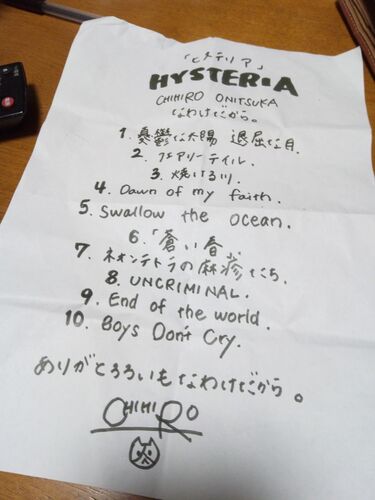 「ヒステリア」
HYSTERIA
CHIHIRO ONITSUKA
なわけだから。
1. 憂鬱な太陽 退屈な月.
2. フェアリーテイル.
3. 焼ける川.
4. Dawn of my faith.
5. Swallow the ocean.
6. 「蒼い春」.
7. ネオンテトラの麻疹たち.
8. UNCRIMINAL.
9. End of the world.
10. Boys Don't Cry.
ありがとろろいもなわけだから。
CHIHIRO